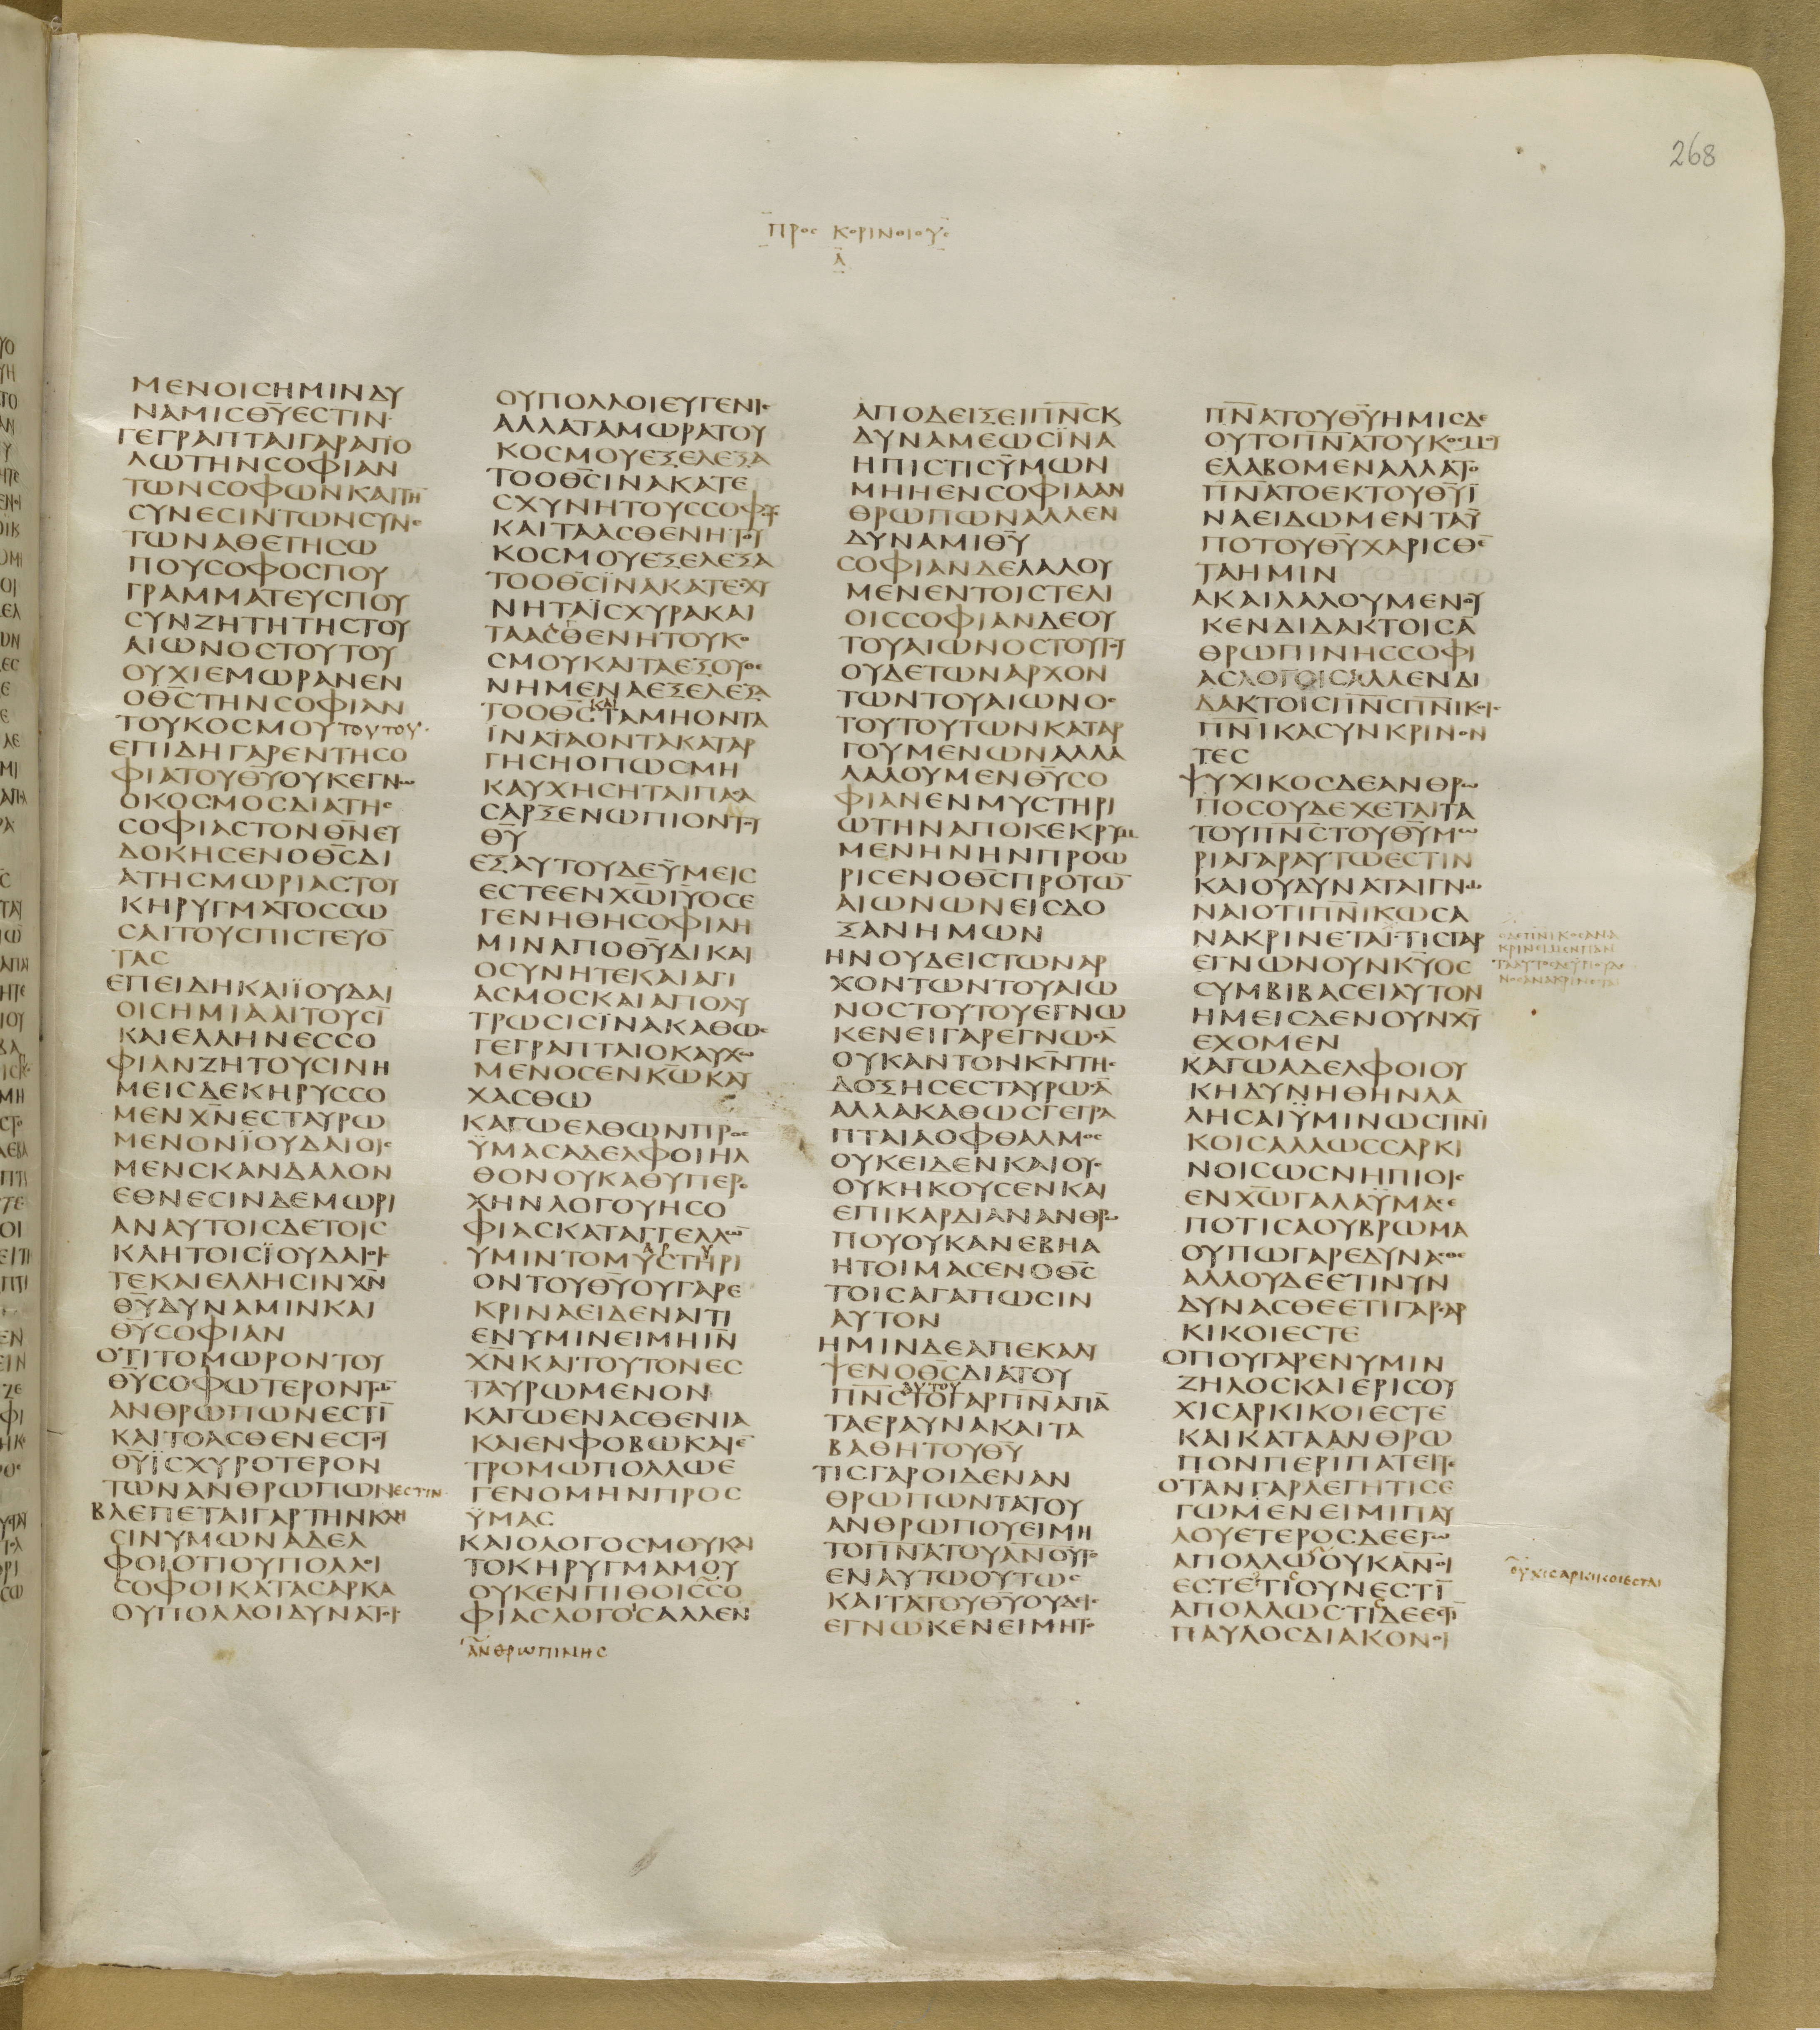 268
ΠΡΟϹ ΚΟΡΙΝΘΙΟΥϹ
Α
ΜΕΝΟΙϹΗΜΙΝΔΥ
ΝΑΜΙϹΘ̅Υ̅ΕϹΤΙΝ·
ΓΕΓΡΑΠΤΑΙΓΑΡΑΠΟ
ΛΩΤΗΝϹΟΦΙΑΝ
ΤΩΝϹΟΦΩΝΚΑΙΤΗ̅
ϹΥΝΕϹΙΝΤΩΝϹΥΝΕ
ΤΩΝΑΘΕΤΗϹΩ
ΠΟΥϹΟΦΟϹΠΟΥ
ΓΡΑΜΜΑΤΕΥϹΠΟΥ
ϹΥΝΖΗΤΗΤΗϹΤΟΥ
ΑΙΩΝΟϹΤΟΥΤΟΥ
ΟΥΧΙΕΜΩΡΑΝΕΝ
ΟΘ̅Ϲ̅ΤΗΝϹΟΦΙΑΝ
ΤΟΥΚΟϹΜΟΥΤΟΥΤΟΥ·
ΕΠΙΔΗΓΑΡΕΝΤΗϹΟ
ΦΙΑΤΟΥΘ̅Υ̅ΟΥΚΕΓΝΩ
ΟΚΟϹΜΟϹΔΙΑΤΗϹ
ϹΟΦΙΑϹΤΟΝΘ̅Ν̅ΕΥ
ΔΟΚΗϹΕΝΟΘ̅Ϲ̅ΔΙ
ΑΤΗϹΜΩΡΙΑϹΤΟΥ
ΚΗΡΥΓΜΑΤΟϹϹΩ
ϹΑΙΤΟΥϹΠΙϹΤΕΥΟ̅
ΤΑϹ
ΕΠΕΙΔΗΚΑΙΪΟΥΔΑΙ
ΟΙϹΗΜΙΑΑΙΤΟΥϹΙ̅
ΚΑΙΕΛΛΗΝΕϹϹΟ
ΦΙΑΝΖΗΤΟΥϹΙΝΗ
ΜΕΙϹΔΕΚΗΡΥϹϹΟ
ΜΕΝΧ̅Ν̅ΕϹΤΑΥΡΩ
ΜΕΝΟΝΪΟΥΔΑΙΟΙϹ
ΜΕΝϹΚΑΝΔΑΛΟΝ
ΕΘΝΕϹΙΝΔΕΜΩΡΙ
ΑΝΑΥΤΟΙϹΔΕΤΟΙϹ
ΚΛΗΤΟΙϹΪΟΥΔΑΙΟΙϹ
ΤΕΚΑΙΕΛΛΗϹΙΝΧ̅Ν̅
Θ̅Υ̅ΔΥΝΑΜΙΝΚΑΙ
Θ̅Υ̅ϹΟΦΙΑΝ
ΟΤΙΤΟΜΩΡΟΝΤΟΥ
Θ̅Υ̅ϹΟΦΩΤΕΡΟΝΤΩ̅
ΑΝΘΡΩΠΩΝΕϹΤΙ̅
ΚΑΙΤΟΑϹΘΕΝΕϹΤΟΥ
Θ̅Υ̅ΪϹΧΥΡΟΤΕΡΟΝ
ΤΩΝΑΝΘΡΩΠΩΝΕϹΤΙΝ
ΒΛΕΠΕΤΑΙΓΑΡΤΗΝΚΛΗ
ϹΙΝΥΜΩΝΑΔΕΛ
ΦΟΙΟΤΙΟΥΠΟΛΛΟΙ
ϹΟΦΟΙΚΑΤΑϹΑΡΚΑ
ΟΥΠΟΛΛΟΙΔΥΝΑΤΟΙ
ΟΥΠΟΛΛΟΙΕΥΓΕΝΙϹ
ΑΛΛΑΤΑΜΩΡΑΤΟΥ
ΚΟϹΜΟΥΕΞΕΛΕΞΑ
ΤΟΟΘ̅Ϲ̅ΙΝΑΚΑΤΕ
ϹΧΥΝΗΤΟΥϹϹΟΦΟΥϹ
ΚΑΙΤΑΑϹΘΕΝΗΤΟΥ
ΚΟϹΜΟΥΕΞΕΛΕΞΑ
ΤΟΟΘ̅Ϲ̅ΪΝΑΚΑΤΕϹΧΥ
ΝΗΤΑΪϹΧΥΡΑΚΑΙ
ΤΑΑϹΘΕΝΗΤΟΥΚΟ
ϹΜΟΥΚΑΙΤΑΕΞΟΥΘΕ
ΝΗΜΕΝΑΕΞΕΛΕΞΑ
ΚΑΙ
ΤΟΟΘ̅Ϲ̅ΤΑΜΗΟΝΤΑ
ΪΝΑΤΑΟΝΤΑΚΑΤΑΡ
ΓΗϹΗΟΠΩϹΜΗ
ΚΑΥΧΗϹΗΤΑΙΠΑϹΑ
ϹΑΡΞΕΝΩΠΙΟΝΤΟΥ
Θ̅Υ̅
ΕΞΑΥΤΟΥΔΕΫΜΕΙϹ
ΕϹΤΕΕΝΧ̅Ω̅Ι̅Υ̅ΟϹΕ
ΓΕΝΗΘΗϹΟΦΙΑΗ
ΜΙΝΑΠΟΘ̅Υ̅ΔΙΚΑΙ
ΟϹΥΝΗΤΕΚΑΙΑΓΙ
ΑϹΜΟϹΚΑΙΑΠΟΛΥ
ΤΡΩϹΙϹΪΝΑΚΑΘΩϹ
ΓΕΓΡΑΠΤΑΙΟΚΑΥΧΩ
ΜΕΝΟϹΕΝΚ̅Ω̅ΚΑΥ
ΧΑϹΘΩ
ΚΑΓΩΕΛΘΩΝΠΡΟϹ
ΫΜΑϹΑΔΕΛΦΟΙΗΛ
ΘΟΝΟΥΚΑΘΥΠΕΡΟ
ΧΗΝΛΟΓΟΥΗϹΟ
ΦΙΑϹΚΑΤΑΓΓΕΛΛΩ̅
ΥΜΙΝΤΟΜΥϹΤΗΡΙ
ΟΝΤΟΥΘ̅Υ̅ΟΥΓΑΡΕ
ΚΡΙΝΑΕΙΔΕΝΑΙΤΙ
ΕΝΥΜΙΝΕΙΜΗΙ̅Ν̅
Χ̅Ν̅ΚΑΙΤΟΥΤΟΝΕϹ
ΤΑΥΡΩΜΕΝΟΝ
ΚΑΓΩΕΝΑϹΘΕΝΙΑ
ΚΑΙΕΝΦΟΒΩΚΑΙΕ̅
ΤΡΟΜΩΠΟΛΛΩΕ
ΓΕΝΟΜΗΝΠΡΟϹ
ΫΜΑϹ
ΚΑΙΟΛΟΓΟϹΜΟΥΚΑΙ
ΤΟΚΗΡΥΓΜΑΜΟΥ
ΟΥΚΕΝΠΙΘΟΙϹϹΟ
ΦΙΑϹΛΟΓΟϹΑΛΛΕΝ
ΑΝΘΡΩΠΙΝΗϹ
ΑΠΟΔΕΙΞΕΙΠ̅Ν̅Ϲ̅Κ
ΔΥΝΑΜΕΩϹΪΝΑ
ΗΠΙϹΤΙϹΫΜΩΝ
ΜΗΗΕΝϹΟΦΙΑΑΝ
ΘΡΩΠΩΝΑΛΛΕΝ
ΔΥΝΑΜΙΘ̅Υ̅
ϹΟΦΙΑΝΔΕΛΑΛΟΥ
ΜΕΝΕΝΤΟΙϹΤΕΛΙ
ΟΙϹϹΟΦΙΑΝΔΕΟΥ
ΤΟΥΑΙΩΝΟϹΤΟΥΤΟΥ
ΟΥΔΕΤΩΝΑΡΧΟΝ
ΤΩΝΤΟΥΑΙΩΝΟϹ
ΤΟΥΤΟΥΤΩΝΚΑΤΑΡ
ΓΟΥΜΕΝΩΝΑΛΛΑ
ΛΑΛΟΥΜΕΝΘ̅Υ̅ϹΟ
ΦΙΑΝΕΝΜΥϹΤΗΡΙ
ΩΤΗΝΑΠΟΚΕΚΡΥΜ
ΜΕΝΗΝΗΝΠΡΟΩ
ΡΙϹΕΝΟΘ̅Ϲ̅ΠΡΟΤΩ̅
ΑΙΩΝΩΝΕΙϹΔΟ
ΞΑΝΗΜΩΝ
ΗΝΟΥΔΕΙϹΤΩΝΑΡ
ΧΟΝΤΩΝΤΟΥΑΙΩ
ΝΟϹΤΟΥΤΟΥΕΓΝΩ
ΚΕΝΕΙΓΑΡΕΓΝΩϹΑ̅
ΟΥΚΑΝΤΟΝΚ̅Ν̅ΤΗϹ
ΔΟΞΗϹΕϹΤΑΥΡΩϹΑ̅
ΑΛΛΑΚΑΘΩϹΓΕΓΡΑ
ΠΤΑΙΑΟΦΘΑΛΜΟϹ
ΟΥΚΕΙΔΕΝΚΑΙΟΥϹ
ΟΥΚΗΚΟΥϹΕΝΚΑΙ
ΕΠΙΚΑΡΔΙΑΝΑΝΘΡΩ
ΠΟΥΟΥΚΑΝΕΒΗΑ
ΗΤΟΙΜΑϹΕΝΟΘ̅Ϲ̅
ΤΟΙϹΑΓΑΠΩϹΙΝ
ΑΥΤΟΝ
ΗΜΙΝΔΕΑΠΕΚΑΛΥ
ΨΕΝΟΘ̅Ϲ̅ΔΙΑΤΟΥ
ΑΥΤΟΥ
Π̅Ν̅Ϲ̅ΤΟΓΑΡΠ̅Ν̅ΑΠΑ̅
ΤΑΕΡΑΥΝΑΚΑΙΤΑ
ΒΑΘΗΤΟΥΘ̅Υ̅
ΤΙϹΓΑΡΟΙΔΕΝΑΝ
ΘΡΩΠΩΝΤΑΤΟΥ
ΑΝΘΡΩΠΟΥΕΙΜΗ
ΤΟΠ̅Ν̅ΑΤΟΥΑ̅Ν̅Ο̅Υ̅ΤΟ
ΕΝΑΥΤΩΟΥΤΩϹ
ΚΑΙΤΑΤΟΥΘ̅Υ̅ΟΥΔΙϹ
ΕΓΝΩΚΕΝΕΙΜΗΤΟ
Π̅Ν̅ΑΤΟΥΘ̅Υ̅ΗΜΙϹΔΕ
ΟΥΤΟΠ̅Ν̅ΑΤΟΥΚΟϹΜΟΥ
ΕΛΑΒΟΜΕΝΑΛΛΑΤΟ
Π̅Ν̅ΑΤΟΕΚΤΟΥΘ̅Υ̅Ϊ
ΝΑΕΙΔΩΜΕΝΤΑΫ
ΠΟΤΟΥΘ̅Υ̅ΧΑΡΙϹΘΕ̅
ΤΑΗΜΙΝ
ΑΚΑΙΛΑΛΟΥΜΕΝΟΥ
ΚΕΝΔΙΔΑΚΤΟΙϹΑ̅
ΘΡΩΠΙΝΗϹϹΟΦΙ
ΑϹΛΟΓΟΙϹΑΛΛΕΝΔΙ
ΔΑΚΤΟΙϹΠ̅Ν̅Ϲ̅Π̅Ν̅ΙΚΟΙϹ
Π̅Ν̅ΙΚΑϹΥΝΚΡΙΝΟΝ
ΤΕϹ
ΨΥΧΙΚΟϹΔΕΑΝΘΡΩ
ΠΟϹΟΥΔΕΧΕΤΑΙΤΑ
ΤΟΥΠ̅Ν̅Ϲ̅ΤΟΥΘ̅Υ̅ΜΩ
ΡΙΑΓΑΡΑΥΤΩΕϹΤΙΝ
ΚΑΙΟΥΔΥΝΑΤΑΙΓΝΩ
ΝΑΙΟΤΙΠ̅Ν̅ΙΚΩϹΑ
ΝΑΚΡΙΝΕΤΑΙ·ΤΙϹΓΑΡ
ΕΓΝΩΝΟΥΝΚ̅Υ̅ΟϹ
ϹΥΜΒΙΒΑϹΕΙΑΥΤΟΝ
ΗΜΕΙϹΔΕΝΟΥΝΧ̅Υ̅
ΕΧΟΜΕΝ
ΚΑΓΩΑΔΕΛΦΟΙΟΥ
ΚΗΔΥΝΗΘΗΝΛΑ
ΛΗϹΑΙΫΜΙΝΩϹΠ̅Ν̅Ι
ΚΟΙϹΑΛΛΩϹϹΑΡΚΙ
ΝΟΙϹΩϹΝΗΠΙΟΙϹ
ΕΝΧ̅Ω̅ΓΑΛΑΫΜΑϹΕ
ΠΟΤΙϹΑΟΥΒΡΩΜΑ
ΟΥΠΩΓΑΡΕΔΥΝΑϹΘΕ
ΑΛΛΟΥΔΕΕΤΙΝΥΝ
ΔΥΝΑϹΘΕΕΤΙΓΑΡϹΑΡ
ΚΙΚΟΙΕϹΤΕ
ΟΠΟΥΓΑΡΕΝΥΜΙΝ
ΖΗΛΟϹΚΑΙΕΡΙϹΟΥ
ΧΙϹΑΡΚΙΚΟΙΕϹΤΕ
ΚΑΙΚΑΤΑΑΝΘΡΩ
ΠΟΝΠΕΡΙΠΑΤΕΙΤΕ
ΟΤΑΝΓΑΡΛΕΓΗΤΙϹΕ
ΓΩΜΕΝΕΙΜΙΠΑΥ
ΛΟΥΕΤΕΡΟϹΔΕΕΓΩ
ΑΠΟΛΛΩΟΥΚΑΝΟΙ
ΕϹΤΕΤΙΟΥΝΕϹΤΙ̅
ΑΠΟΛΛΩϹΤΙΔΕΕϹΤΙ̅
ΠΑΥΛΟϹΔΙΑΚΟΝΟΙ
ΟΥΧΙϹΑΡΚΙΚΟΙΕϹΤΑΙ